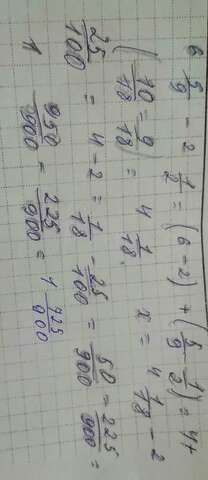 6 5/9 - 2 1/2 = (6-2) + (5/9 1/2) = 4+
(10/18 = 9/18) = 4 1/18. x = 4 1/18 - 2
25/100 = 4-2 = 1/18 - 25/100 = 50/900 = 225/900 =
1 950/900 = 225/900 = 1 725/900